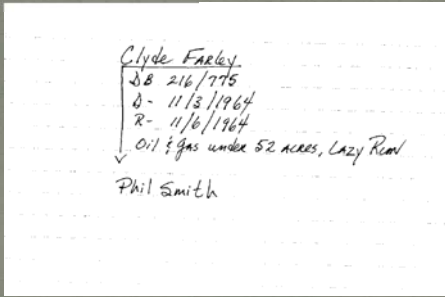 Clyde Farley
DB 216/775
D- 11/3/1964
R- 11/6/1964
Oil & gas under 52 acres, Lazy Run
Phil Smith